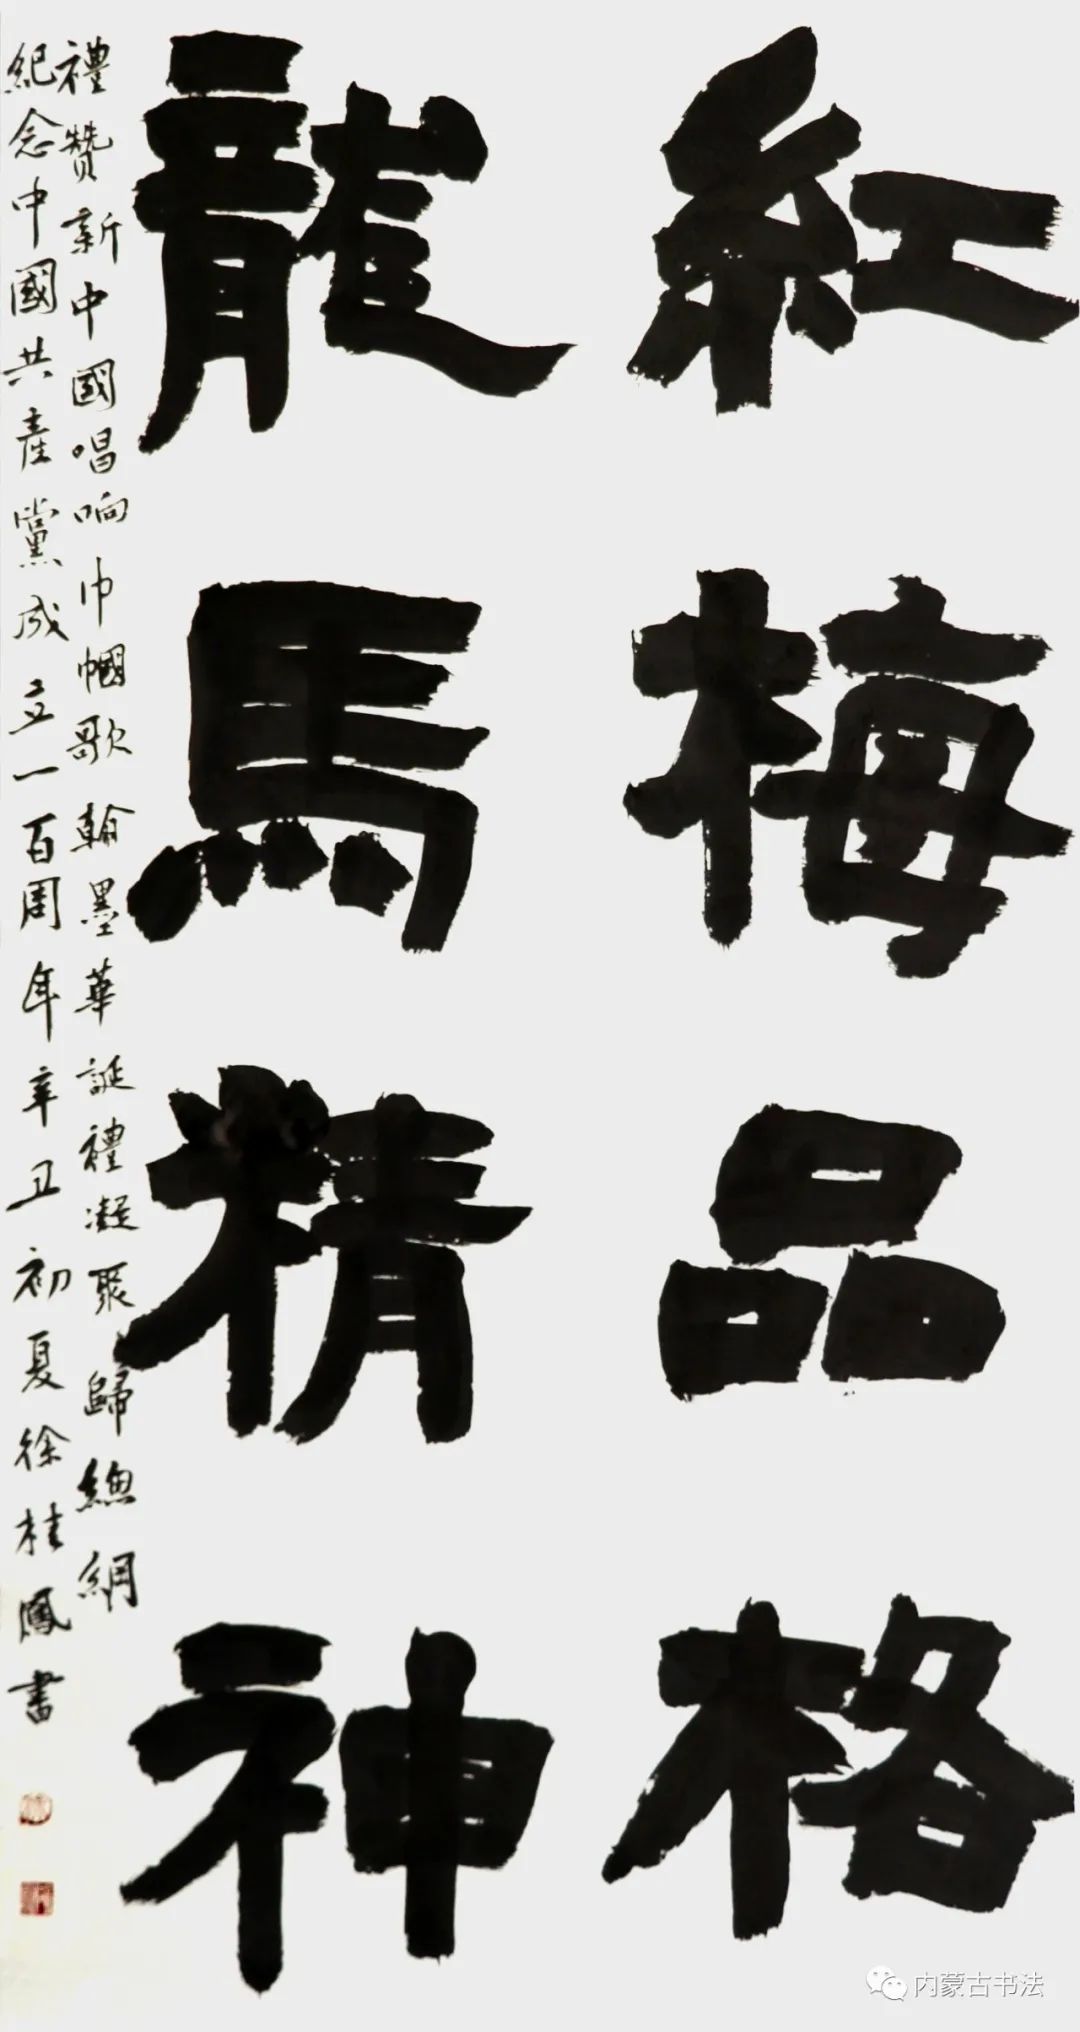 紅梅品格
龍馬精神
禮贊新中國唱响巾幗歌翰墨華誕禮凝聚歸總綱
紀念中國共產黨成立一百周年辛丑初夏徐桂鳳書
内蒙古书法